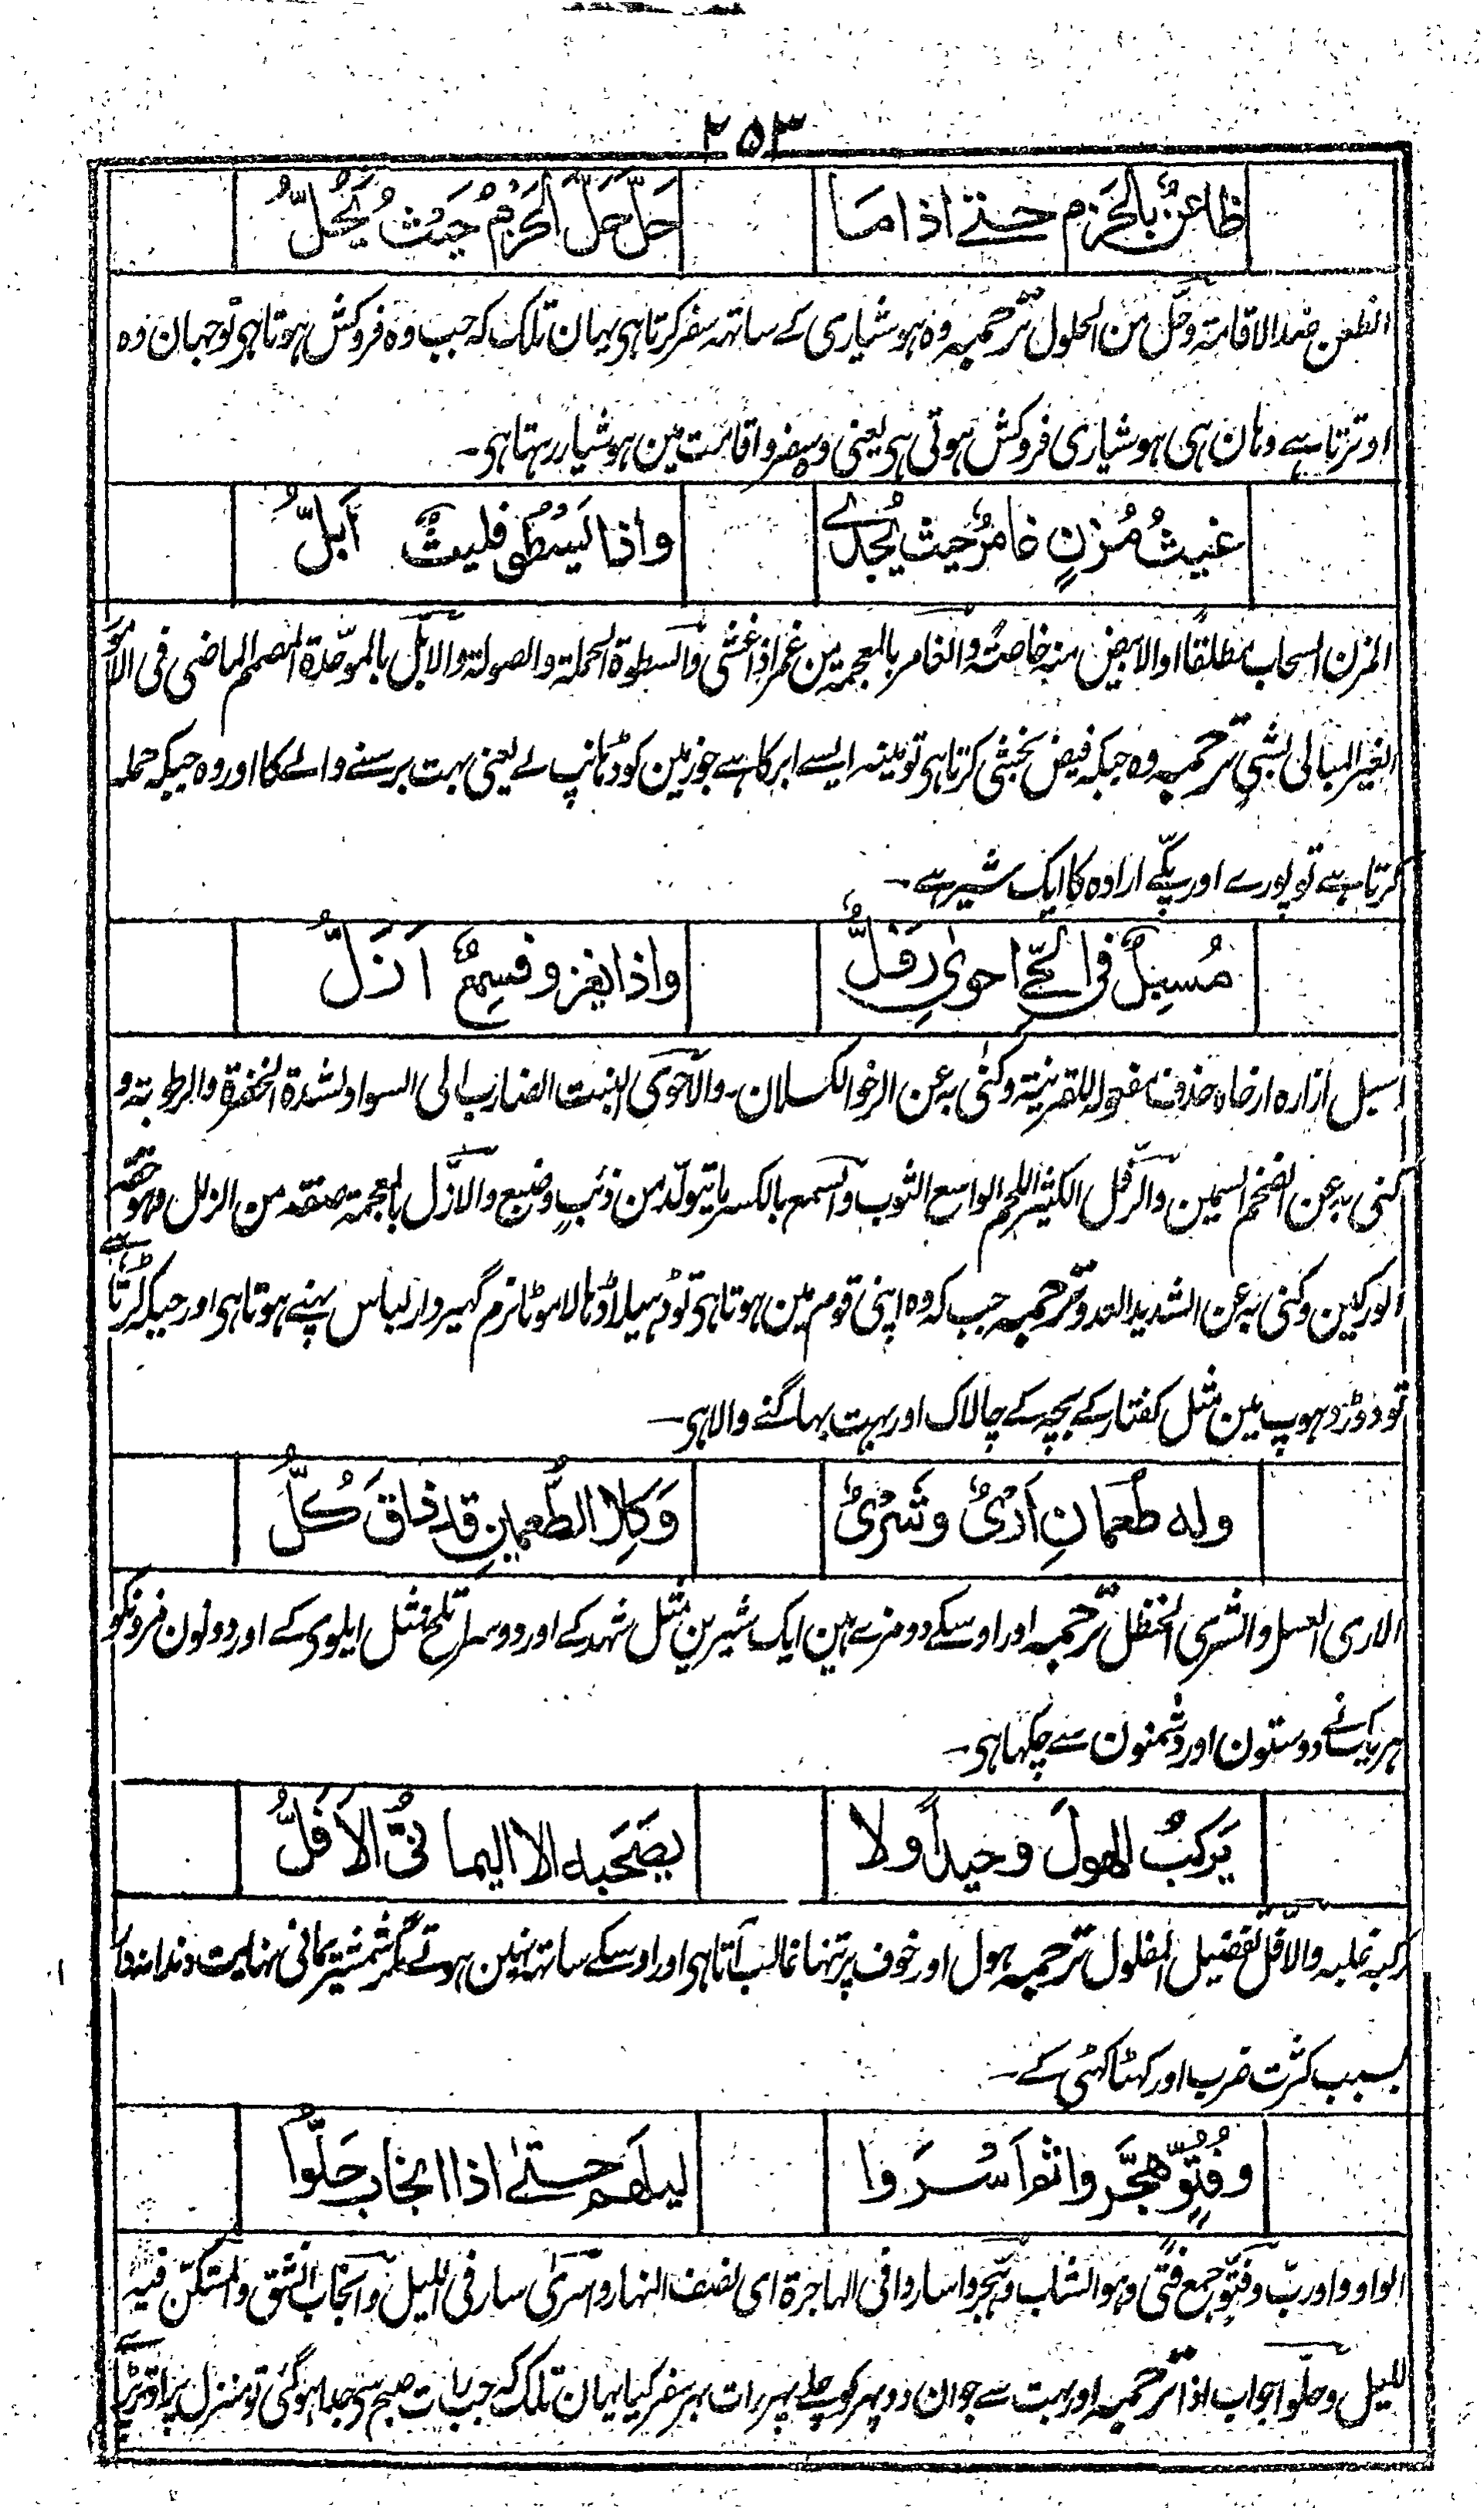 ۲۵۳
ظاعنٌ بالحَزم حتے اذا ما حَلَّ حَلَّ الحَزمُ حَیثُ یَحُلُّ
الظعن ضد الاقامۃ وحل من الحلول ترجمہ وہ ہوشیاری کے ساتھہ سفر کرتا ہی یہان تلک کہ جب وہ فروکش ہوتا ہی تو جہان وہ
اوترتا ہے وہان ہی ہوشیاری فروکش ہوتی ہی یعنی وہ سفر و اقامت مین ہوشیار رہتا ہی۔
غیثُ مُزنٍ غامرٌ حیث یُجدے واذا یَسطُو فلیثٌ اَبَلُّ
المزن السحاب مطلقًا او الابیض منہ خاصۃً والغامر بالمعجمہ من غمر اذا غشی والسطوۃ الحملۃ والصولۃ والابل بالموحّدۃ المصمم الماضی فی الامور
الغیر المبالی بشیٍ ترجمہ وہ جبکہ فیض بخشی کرتا ہی تو مینہ ایسے ابر کا ہے جو زمین کو ڈہانپ لے یعنی بہت برسنے والے کا اور وہ جبکہ حملہ
کرتا ہے تو پورے اور پکّے ارادہ کا ایک شیر ہے۔
مُسبِلٌ فی الحَے احوٰی رِفَلُّ واذا یغزو فسِمعٌ اَزَلُّ
اسبل ازارہ ارخاہ حذف مفعولہ للقرینۃ وکنی بہ عن الرخو الکسلان۔ والاحوٰی النبت الضارب الی السواد لشدۃ الخضرۃ والرطوبۃ و
کنی بہ عن الضخم السمین والرفل الکثیر اللحم الواسع الثوب والسمع بالکسر ما یتولّد من ذئبٍ وضبع والازل بالمعجمۃ صفۃ من الزلل وہو خفۃ
الورکین وکنی بہ عن الشدید العدو ترجمہ جب کہ وہ اپنی قوم مین ہوتا ہی تو ڈہیلا ڈہالا موٹا نرم گہیر وار لباس پہنے ہوتا ہی اور جبکہ لڑتا ہے
تو دوڑ دہوپ مین مثل کفتار کے بچہ کے چالاک اور بہت بہاگنے والا ہی۔
ولہ طعمانِ اَرْیٌ وشَرْیٌ وَکِلا الطَّعمینِ قد ذاقَ کُلُّ
الاری العسل والشری الحنظل ترجمہ اور اوسکے دو مزے ہین ایک شیرین مثل شہد کے اور دوسرا تلخ مثل ایلوی کے اور دونون مزونکو
ہریک نے دوستون اور دشمنون سے چکہا ہی۔
یَرکَبُ الھولَ وحیداً ولا یصحَبہ الا الیمانیُّ الاَفَلُّ
رکبہ غلبہ والافل تفضیل المفلول ترجمہ ہول اور خوف پر تنہا غالب آتا ہی اور اوسکے ساتہ نہین ہوتے مگر شمشیر یمانی نہایت دندانہ دار
بسبب کثرت ضرب اور کہٹا کہٹی کے۔
وفُتُوٍّ ھَجَّروا ثم اَسرَوا لیلھم حتیٰ اذا انجاب حَلّوا
الواو واو ربّ وفتوّ جمع فتًی وہو الشاب وہجّروا ساروا فی الہاجرۃ ای نصف النہار واسریٰ سار فی اللیل وانجاب انشق والمستکنّ فیہ
للیل وحلّوا جواب اذا ترجمہ اور بہت سے جوان دوپہر کو چلے پہر رات بہر سفر کیا یہان تلک کہ جب رات صبح سی جدا ہوگئی تو منزل پر اوتر پڑے